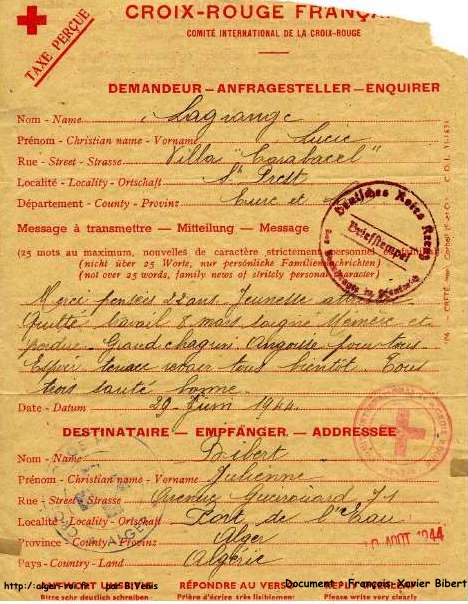 CROIX-ROUGE FRANÇA
COMITÉ INTERNATIONAL DE LA CROIX-ROUGE
TAXE PERÇUE
DEMANDEUR — ANFRAGESTELLER — ENQUIRER
Nom - Name Lagrange
Prénom - Christian name - Vorname Lucie
Rue - Street - Strasse Villa "Carabacel"
Localité - Locality - Ortschaft St Prest
Département - County - Provinz Eure et
Deutsches Rotes Kreuz
Briefstempel
Message à transmettre — Mitteilung — Message
(25 mots au maximum, nouvelles de caractère strictement personnel
(nicht über 25 Worte, nur persönliche Familiennachrichten)
(not over 25 words, family news of strictly personal character)
Merci pensées 22 ans. Jeunesse
Quitté travail 8 mois soigné Mémère et
perdue. Grand chagrin. Angoisse pour tous
Espoir tenace revoir tous bientôt. Tous
trois santé bonne.
Date - Datum 29 Juin 1944.
DESTINATAIRE — EMPFÄNGER — ADDRESSEE
Nom - Name Bibert
Prénom - Christian name - Vorname Julienne
Rue - Street - Strasse Avenue Guerouard 71
Localité - Locality - Ortschaft Fort de l'Eau
Province - County - Provinz Alger
Pays - Country - Land Algérie
AOUT 1944
ALGER
ANTWORT UMSEITIG RÉPONDRE AU VERSO REPLY OVERLEAF
Bitte sehr deutlich schreiben Prière d'écrire très lisiblement Please write very clearly
http://alger-roi.fr par B.Venis
Document : François Xavier Bibert